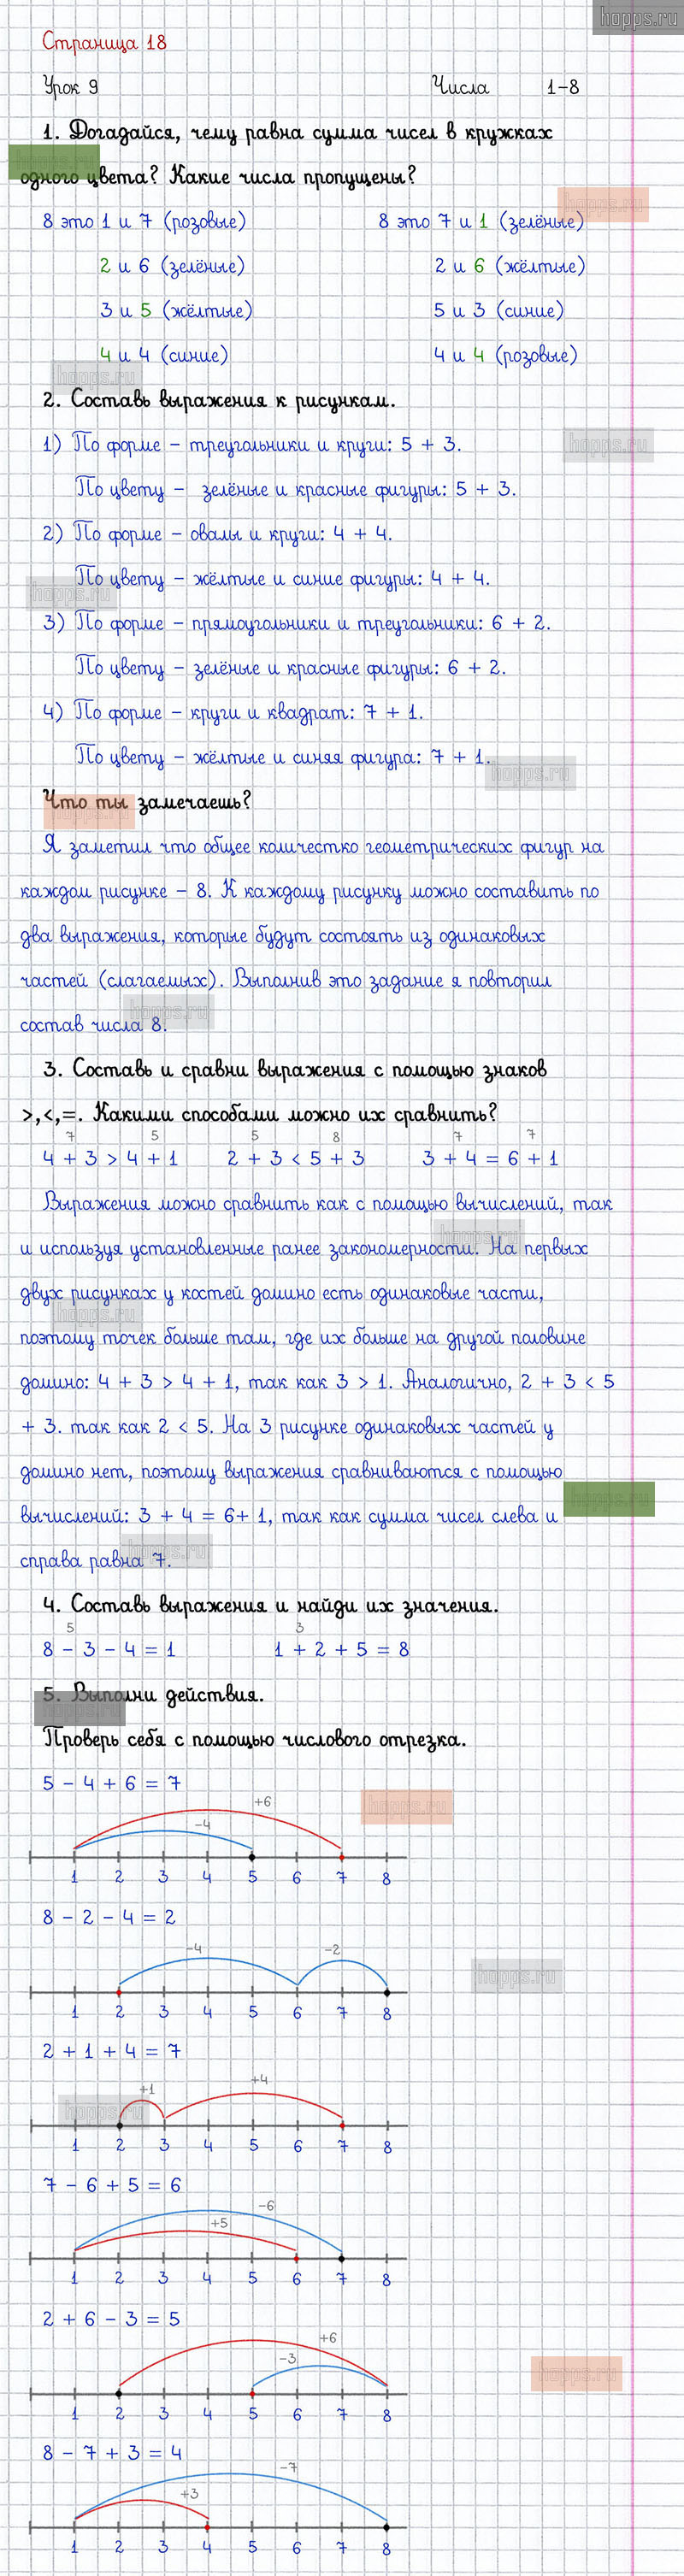 hopps.ru
Страница 18
Урок 9 Числа 1-8
1. Догадайся, чему равна сумма чисел в кружках
одного цвета? Какие числа пропущены?
hopps.ru
8 это 1 и 7 (розовые) 8 это 7 и 1 (зелёные)
2 и 6 (зелёные) 2 и 6 (жёлтые)
3 и 5 (жёлтые) 5 и 3 (синие)
4 и 4 (синие) 4 и 4 (розовые)
hopps.ru
2. Составь выражения к рисункам.
1) По форме - треугольники и круги: 5 + 3.
hopps.ru
По цвету - зелёные и красные фигуры: 5 + 3.
2) По форме - овалы и круги: 4 + 4.
По цвету - жёлтые и синие фигуры: 4 + 4.
hopps.ru
3) По форме - прямоугольники и треугольники: 6 + 2.
По цвету - зелёные и красные фигуры: 6 + 2.
4) По форме - круги и квадрат: 7 + 1.
По цвету - жёлтые и синяя фигура: 7 + 1.
hopps.ru
Что ты замечаешь?
hopps.ru
Я заметил что общее количестко геометрических фигур на
каждом рисунке - 8. К каждому рисунку можно составить по
два выражения, которые будут состоять из одинаковых
частей (слагаемых). Выполнив это задание я повторил
hopps.ru
состав числа 8.
3. Составь и сравни выражения с помощью знаков
>,<,=. Какими способами можно их сравнить?
7 5 5 8 7 7
4 + 3 > 4 + 1 2 + 3 < 5 + 3 3 + 4 = 6 + 1
Выражения можно сравнить как с помощью вычислений, так
hopps.ru
и используя установленные ранее закономерности. На первых
двух рисунках у костей домино есть одинаковые части,
hopps.ru
поэтому точек больше там, где их больше на другой половине
домино: 4 + 3 > 4 + 1, так как 3 > 1. Аналогично, 2 + 3 < 5
+ 3. так как 2 < 5. На 3 рисунке одинаковых частей у
домино нет, поэтому выражения сравниваются с помощью
hopps.ru
вычислений: 3 + 4 = 6+ 1, так как сумма чисел слева и
hopps.ru
справа равна 7.
4. Составь выражения и найди их значения.
5 3
8 - 3 - 4 = 1 1 + 2 + 5 = 8
5. Выполни действия.
hopps.ru
Проверь себя с помощью числового отрезка.
5 - 4 + 6 = 7
hopps.ru
+6
-4
1 2 3 4 5 6 7 8
8 - 2 - 4 = 2
-4 -2
hopps.ru
1 2 3 4 5 6 7 8
2 + 1 + 4 = 7
+1 +4
hopps.ru
1 2 3 4 5 6 7 8
7 - 6 + 5 = 6
-6
+5
1 2 3 4 5 6 7 8
2 + 6 - 3 = 5
+6
-3
hopps.ru
1 2 3 4 5 6 7 8
8 - 7 + 3 = 4
-7
+3
1 2 3 4 5 6 7 8